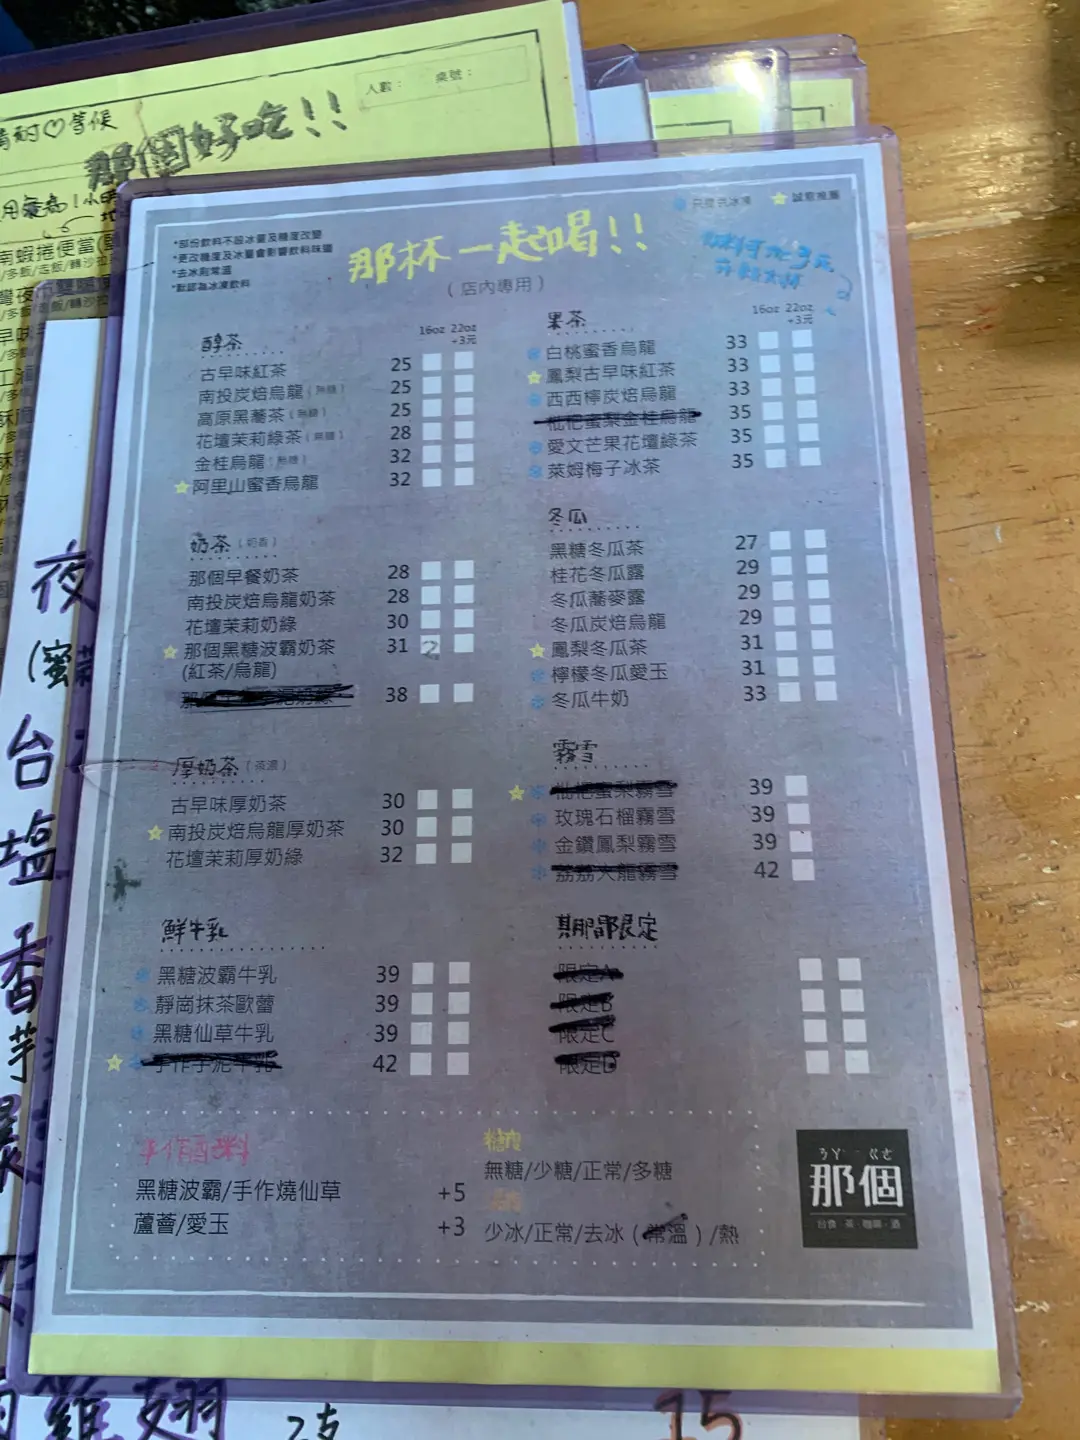 人數： 桌號：
那個好吃!!
*部份飲料不設冰量及糖度改變
*更改糖度及冰量會影響飲料味道
*去冰則常溫
*默認為冰凍飲料
那杯一起喝!!
(店內專用)
誠意推薦
醇茶
16oz 22oz
+3元
古早味紅茶 25
南投炭焙烏龍(無糖) 25
高原黑蕎茶(無糖) 25
花壇茉莉綠茶(無糖) 28
金桂烏龍(無糖) 32
阿里山蜜香烏龍 32
奶茶(奶香)
那個早餐奶茶 28
南投炭焙烏龍奶茶 28
花壇茉莉奶綠 30
那個黑糖波霸奶茶 31 2
(紅茶/烏龍)
38
厚奶茶(茶濃)
古早味厚奶茶 30
南投炭焙烏龍厚奶茶 30
花壇茉莉厚奶綠 32
鮮牛乳
黑糖波霸牛乳 39
靜崗抹茶歐蕾 39
黑糖仙草牛乳 39
手作芋泥牛乳 42
果茶
16oz 22oz
+3元
白桃蜜香烏龍 33
鳳梨古早味紅茶 33
西西檸炭焙烏龍 33
枇杷蜜梨金桂烏龍 35
愛文芒果花壇綠茶 35
萊姆梅子冰茶 35
冬瓜
黑糖冬瓜茶 27
桂花冬瓜露 29
冬瓜蕎麥露 29
冬瓜炭焙烏龍 29
鳳梨冬瓜茶 31
檸檬冬瓜愛玉 31
冬瓜牛奶 33
霧雪
枇杷蜜梨霧雪 39
玫瑰石榴霧雪 39
金鑽鳳梨霧雪 39
荔荔火龍霧雪 42
期間限定
限定A
限定B
限定C
限定D
手作配料
黑糖波霸/手作燒仙草 +5
蘆薈/愛玉 +3
糖度
無糖/少糖/正常/多糖
少冰/正常/去冰(常溫)/熱
ㄋㄚˋ ㄍㄜ
那個
台食·茶·咖啡·酒
夜
(蜜
台
塩
香
芋
雞翅 2支 75